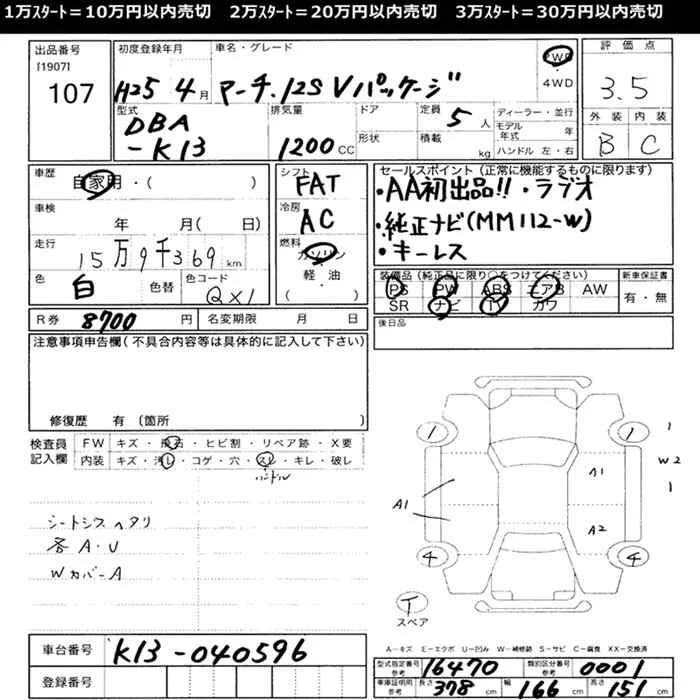 1万ｽﾀｰﾄ＝10万円以内売切　2万ｽﾀｰﾄ＝20万円以内売切　3万ｽﾀｰﾄ＝30万円以内売切
出品番号
[1907]
107
初度登録年月
H25 4月
車名・グレード
マーチ.12S Vパッケージ
2WD
4WD
評価点
3.5
外装 内装
B C
型式
DBA
-K13
排気量
1200CC
ドア
形状
定員 5人
積載 kg
ディーラー・並行
モデル年式 年
ハンドル 左・右
車歴 自家用・( )
車検 年 月( 日)
走行 15万9千369km
色 白 色替 色コード QX1
シフト
FAT
冷房
AC
燃料
ガソリン
軽・油
( )
セールスポイント(正常に機能するものに限ります)
・AA初出品!!・ラジオ
・純正ナビ(MM112-W)
・キーレス
装備品(純正品に限り○をつけてください)
PS PW ABS エアB AW
SR ナビ TV カワ
新車保証書
有・無
R券 8700円 名変期限 月 日
後日品
注意事項申告欄(不具合内容等は具体的に記入して下さい)
修復歴 有(箇所 )
検査員記入欄
FW キズ・飛石・ヒビ割・リペア跡・X要
内装 キズ・汚れ・コゲ・穴・スレ・キレ・破レ
ハンドル
シートシワ ヘタリ
各A・U
WカバーA
1
1
1
W2
1
A1
A1
A2
4
4
T
スペア
A－キズ E－エクボ U－凹み W－補修跡 S－サビ C－腐食 XX－交換済
車台番号 K13-040596
登録番号
型式指定番号 参考 16470 類別区分番号 参考 0001
車庫証明用 参考 長さ 378cm 幅 166cm 高さ 151cm